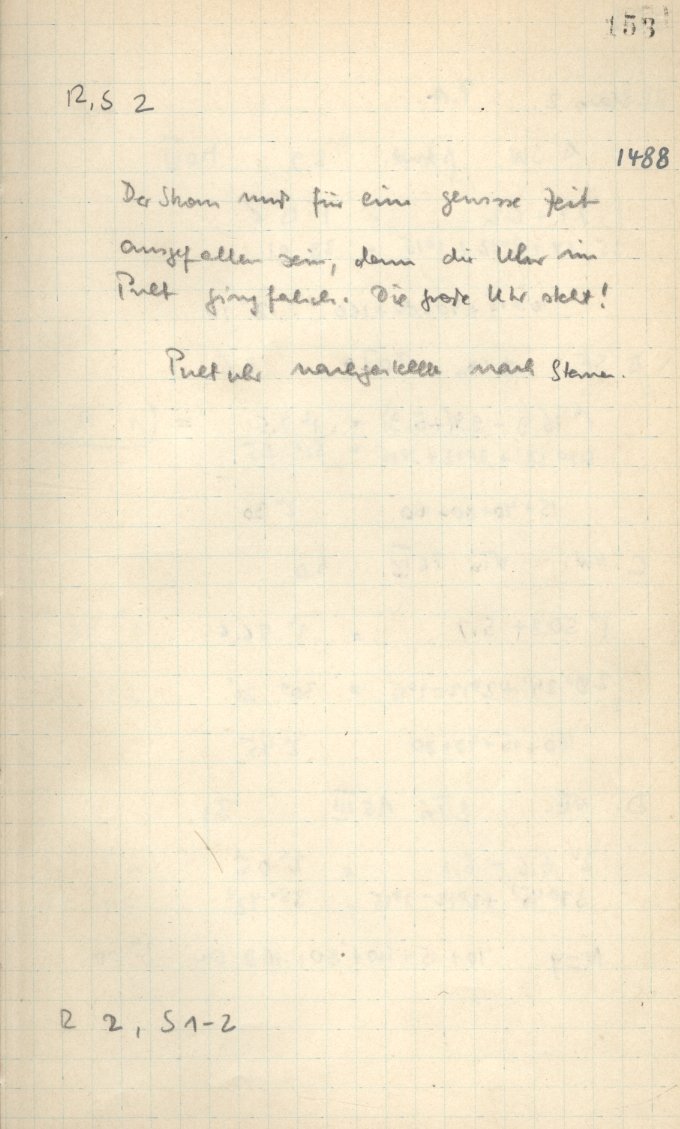 153
R, S 2
1488
Der Strom muß für eine gewisse Zeit
ausgefallen sein, denn die Uhr im
Pult ging falsch. Die große Uhr steht!
Pultuhr nachgestellt nach
R 2, S 1-2